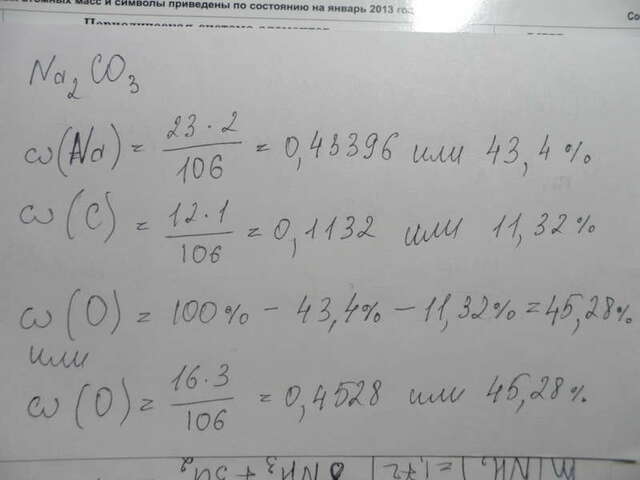 атомных масс и символы приведены по состоянию на январь 2013 год
Со
Периодическая система элементов
Na₂CO₃
ω(Na) = 23·2/106 = 0,43396 или 43,4%
ω(C) = 12·1/106 = 0,1132 или 11,32%
ω(O) = 100% − 43,4% − 11,32% = 45,28%
или
ω(O) = 16·3/106 = 0,4528 или 45,28%